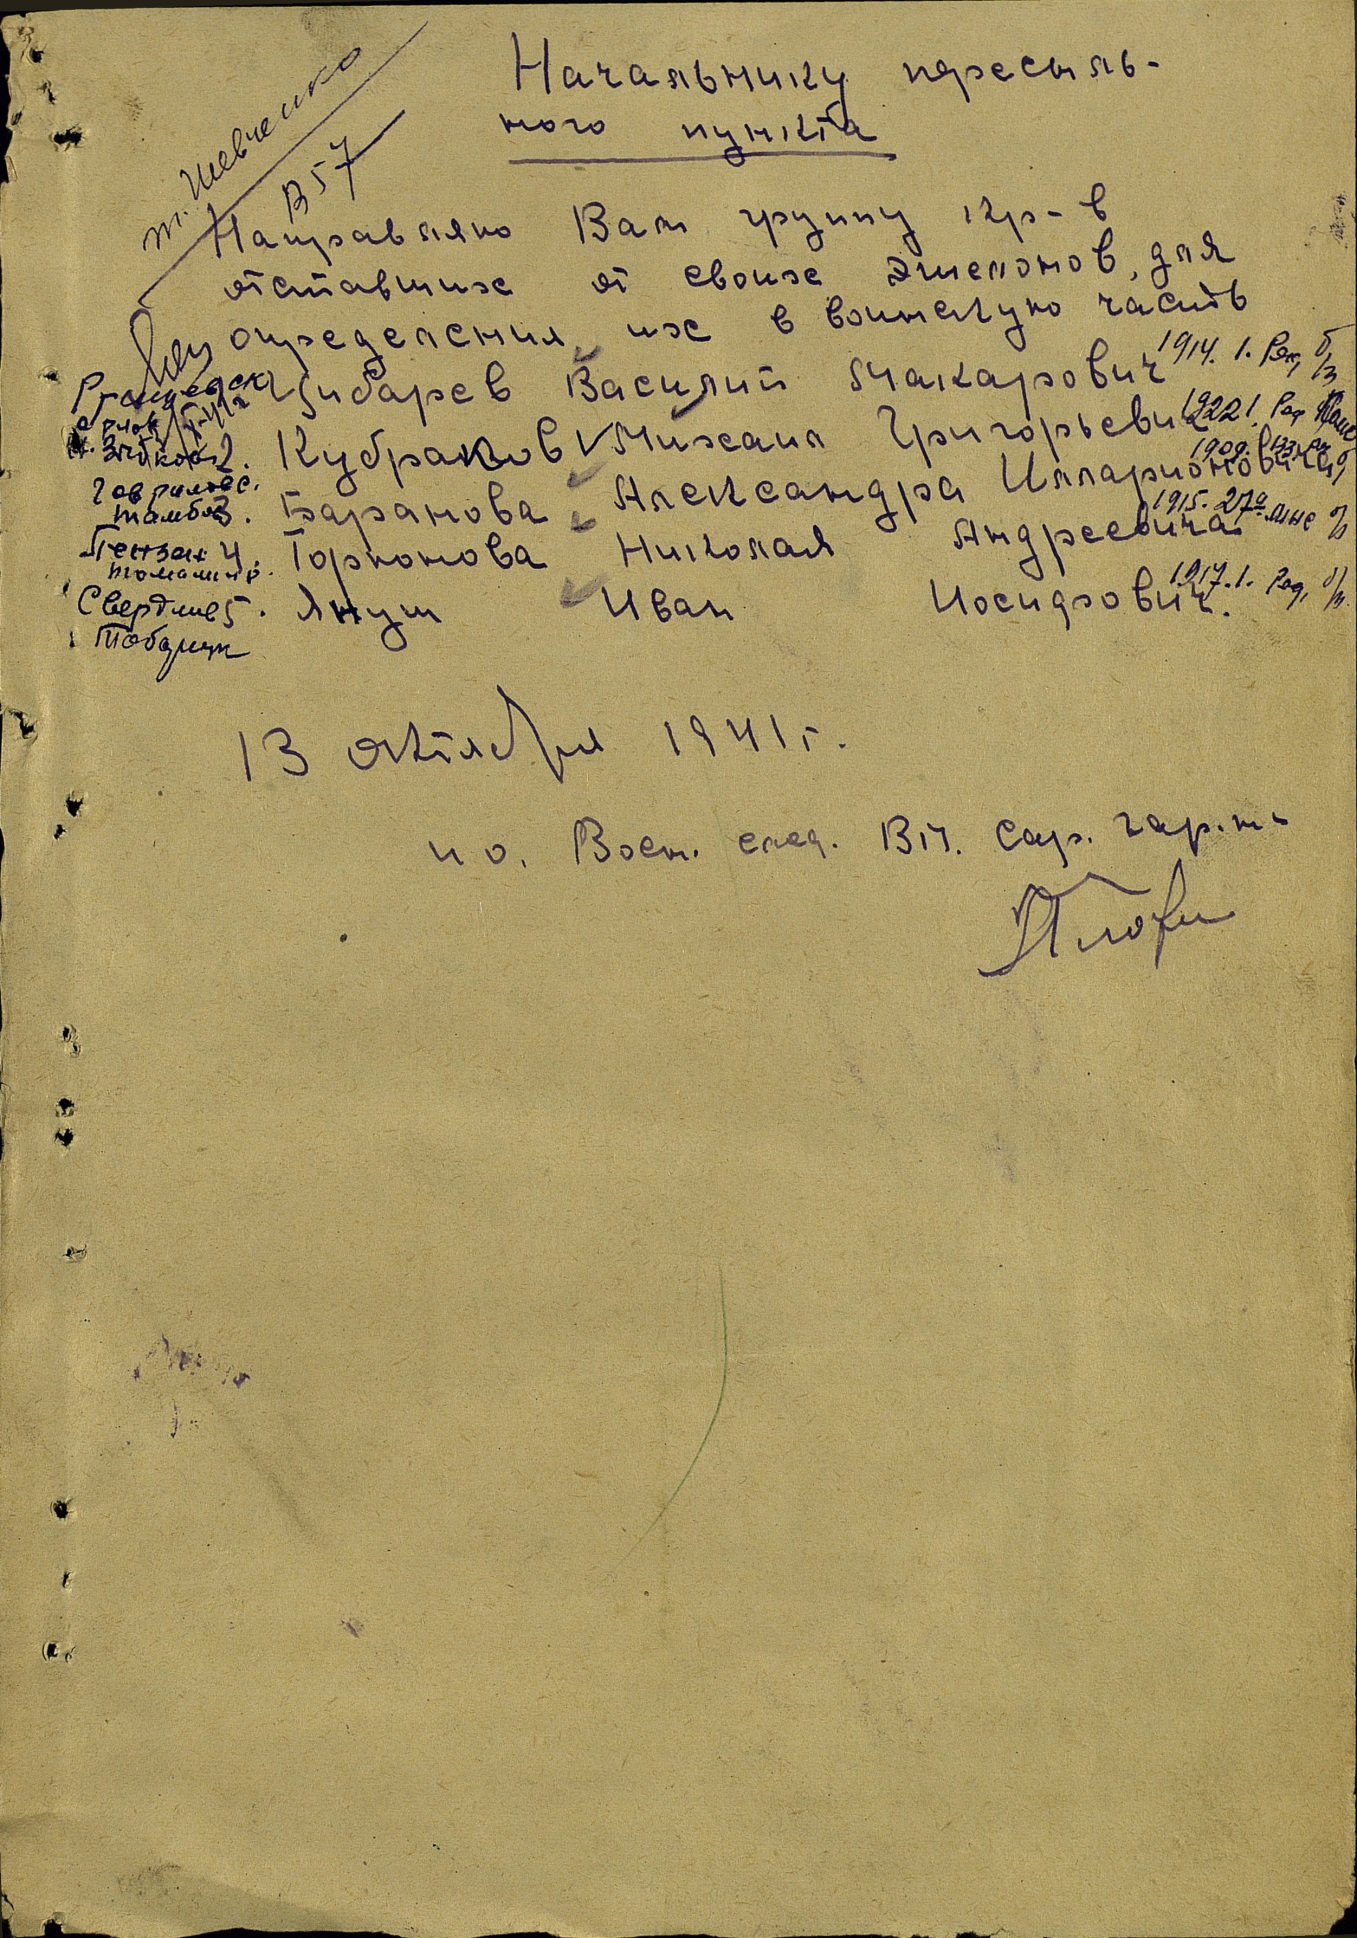 Начальнику пересыль-
ного пункта
т. Шевченко
В 57
Направляю Вам группу кр-в
отставших от своих эшелонов, для
определения их в воинскую часть
Цибарев Василий Макарович 1914. 1. Ряд, б/п
2. Кубраков Михаил Григорьевич 1922 1. Ряд
Гаврилов с.
Тамбов 3. Баранова Александра Илларионовича 1909.
Пензен 4. Горюнова Николая Андреевича 1915. 27а
Свердлов 5. Януш Иван Иосифович. 1917. 1. Ряд, б/п
13 октября 1941 г.
и о. Воен. след. ВП. Сар. гар-на